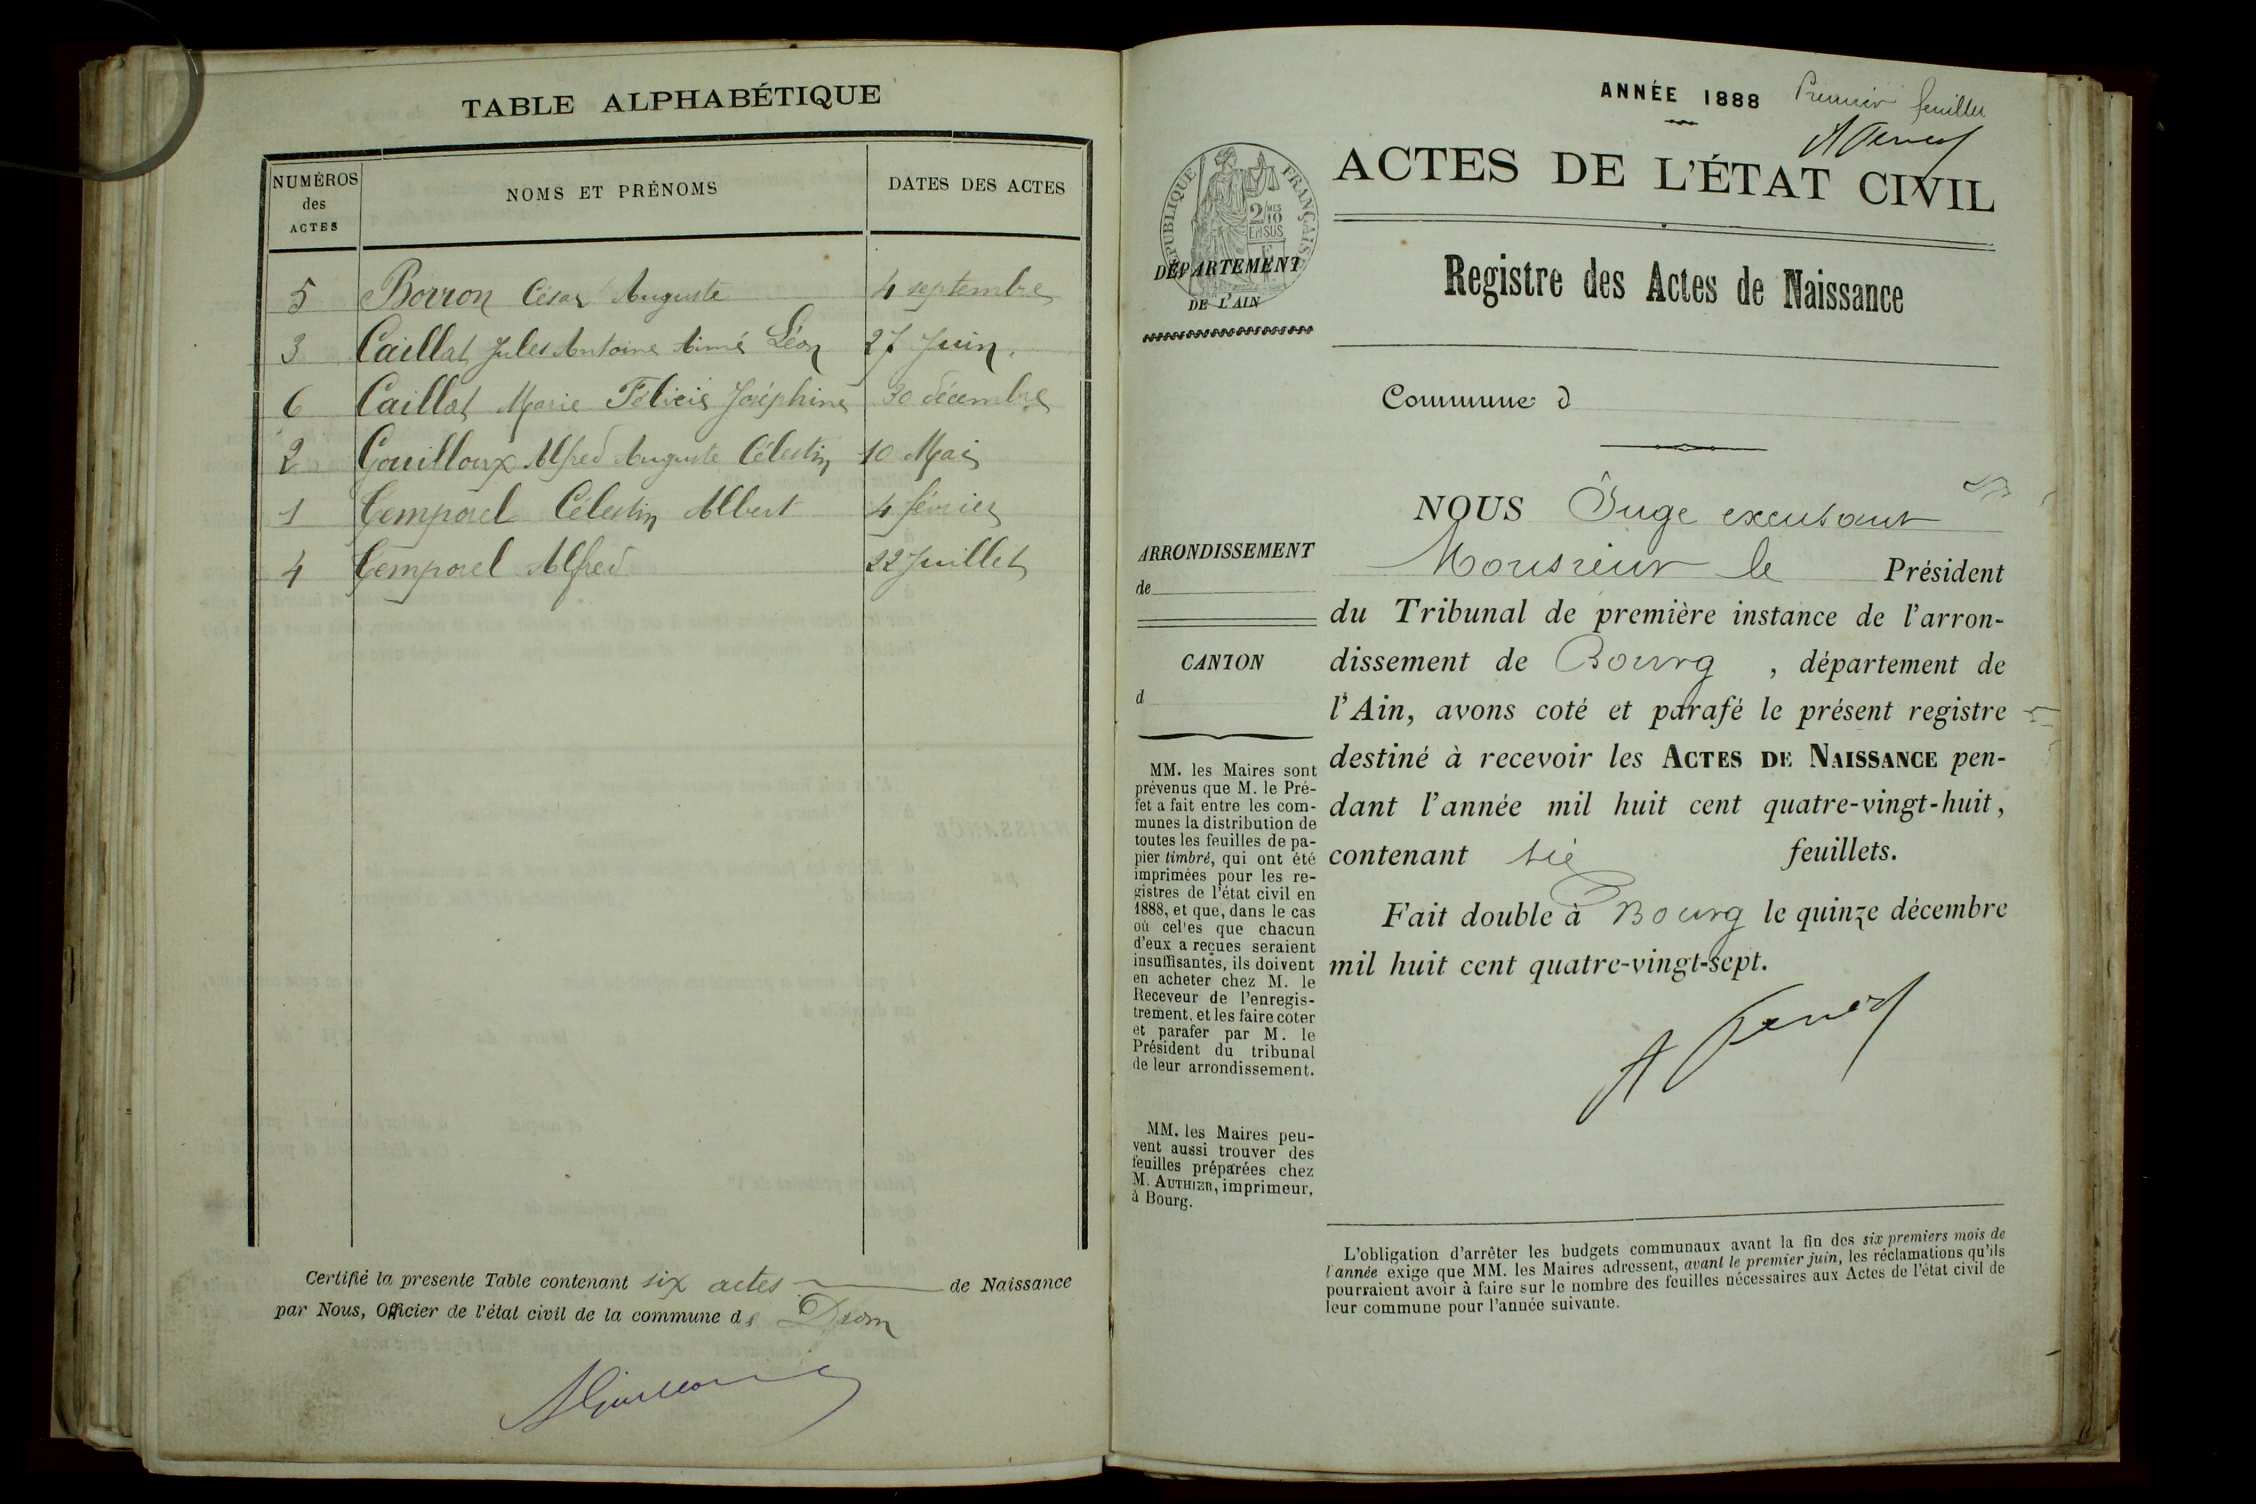 TABLE ALPHABÉTIQUE
NUMÉROS
des
ACTES
NOMS ET PRÉNOMS
DATES DES ACTES
5 Borron César Auguste 4 septembre
3 Caillat Jules Antoine Aimé Léon 27 Juin
6 Caillat Marie Félicie Joséphine 30 décembre
2 Gouilloux Alfred Auguste Célestin 10 Mai
1 Temporel Célestin Albert 4 février
4 Temporel Alfred 22 Juillet
Certifié la presente Table contenant six actes de Naissance
par Nous, Officier de l'état civil de la commune de Drom
ANNÉE 1888
Premier feuillet
ACTES DE L'ÉTAT CIVIL
RÉPUBLIQUE FRANÇAISE
2/10
EN SUS
DÉPARTEMENT
DE L'AIN
Registre des Actes de Naissance
Commune d
ARRONDISSEMENT
de
CANTON
d
MM. les Maires sont
prévenus que M. le Pré-
fet a fait entre les com-
munes la distribution de
toutes les feuilles de pa-
pier timbré, qui ont été
imprimées pour les re-
gistres de l'état civil en
1888, et que, dans le cas
où cel'es que chacun
d'eux a reçues seraient
insuffisantes, ils doivent
en acheter chez M. le
Receveur de l'enregis-
trement. et les faire coter
et parafer par M. le
Président du tribunal
de leur arrondissement.
MM. les Maires peu-
vent aussi trouver des
feuilles préparées chez
M. AUTHIER, imprimeur,
à Bourg.
NOUS Juge exerçant
Monsieur le Président
du Tribunal de première instance de l'arron-
dissement de Bourg, département de
l'Ain, avons coté et parafé le présent registre
destiné à recevoir les ACTES DE NAISSANCE pen-
dant l'année mil huit cent quatre-vingt-huit,
contenant six feuillets.
Fait double à Bourg le quinze décembre
mil huit cent quatre-vingt-sept.
L'obligation d'arrêter les budgets communaux avant la fin des six premiers mois de
l'année exige que MM. les Maires adressent, avant le premier juin, les réclamations qu'ils
pourraient avoir à faire sur le nombre des feuilles nécessaires aux Actes de l'état civil de
leur commune pour l'année suivante.